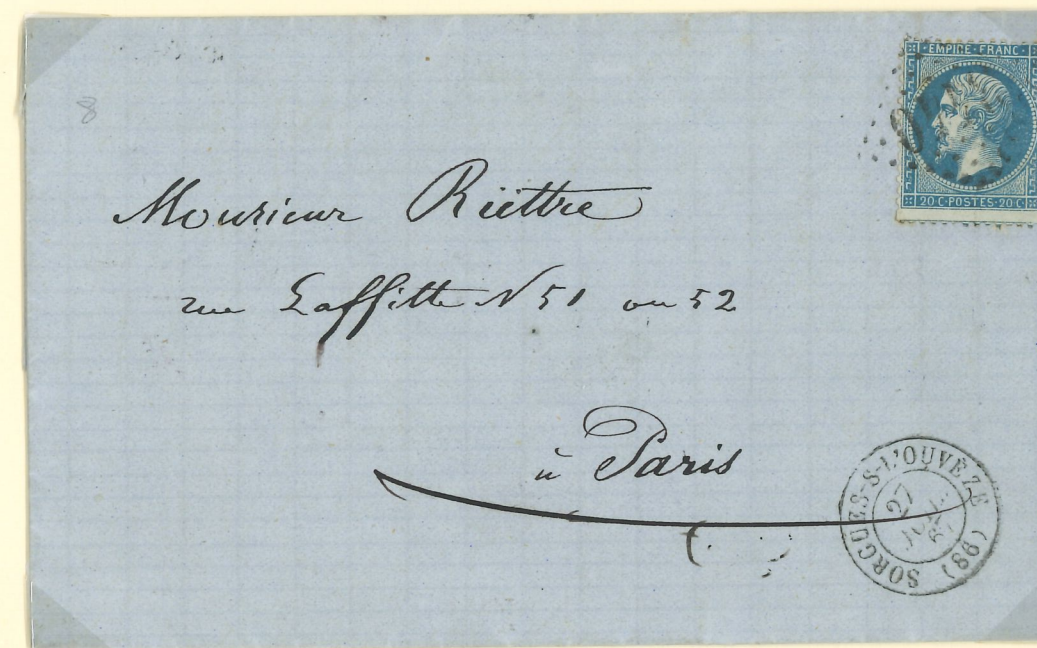 8
EMPIRE · FRANC ·
20 C · POSTES · 20 C ·
Monsieur Riëttre
rue Laffitte N 51 ou 52
à Paris
SORGUES-S-L'OUVÈZE (86)
27